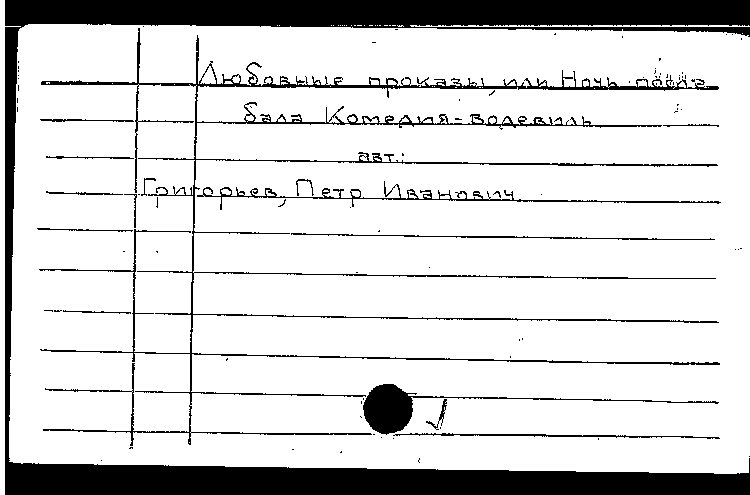 Любовные проказы, или Ночь после
бала Комедия-водевиль
авт.:
Григорьев, Петр Иванович